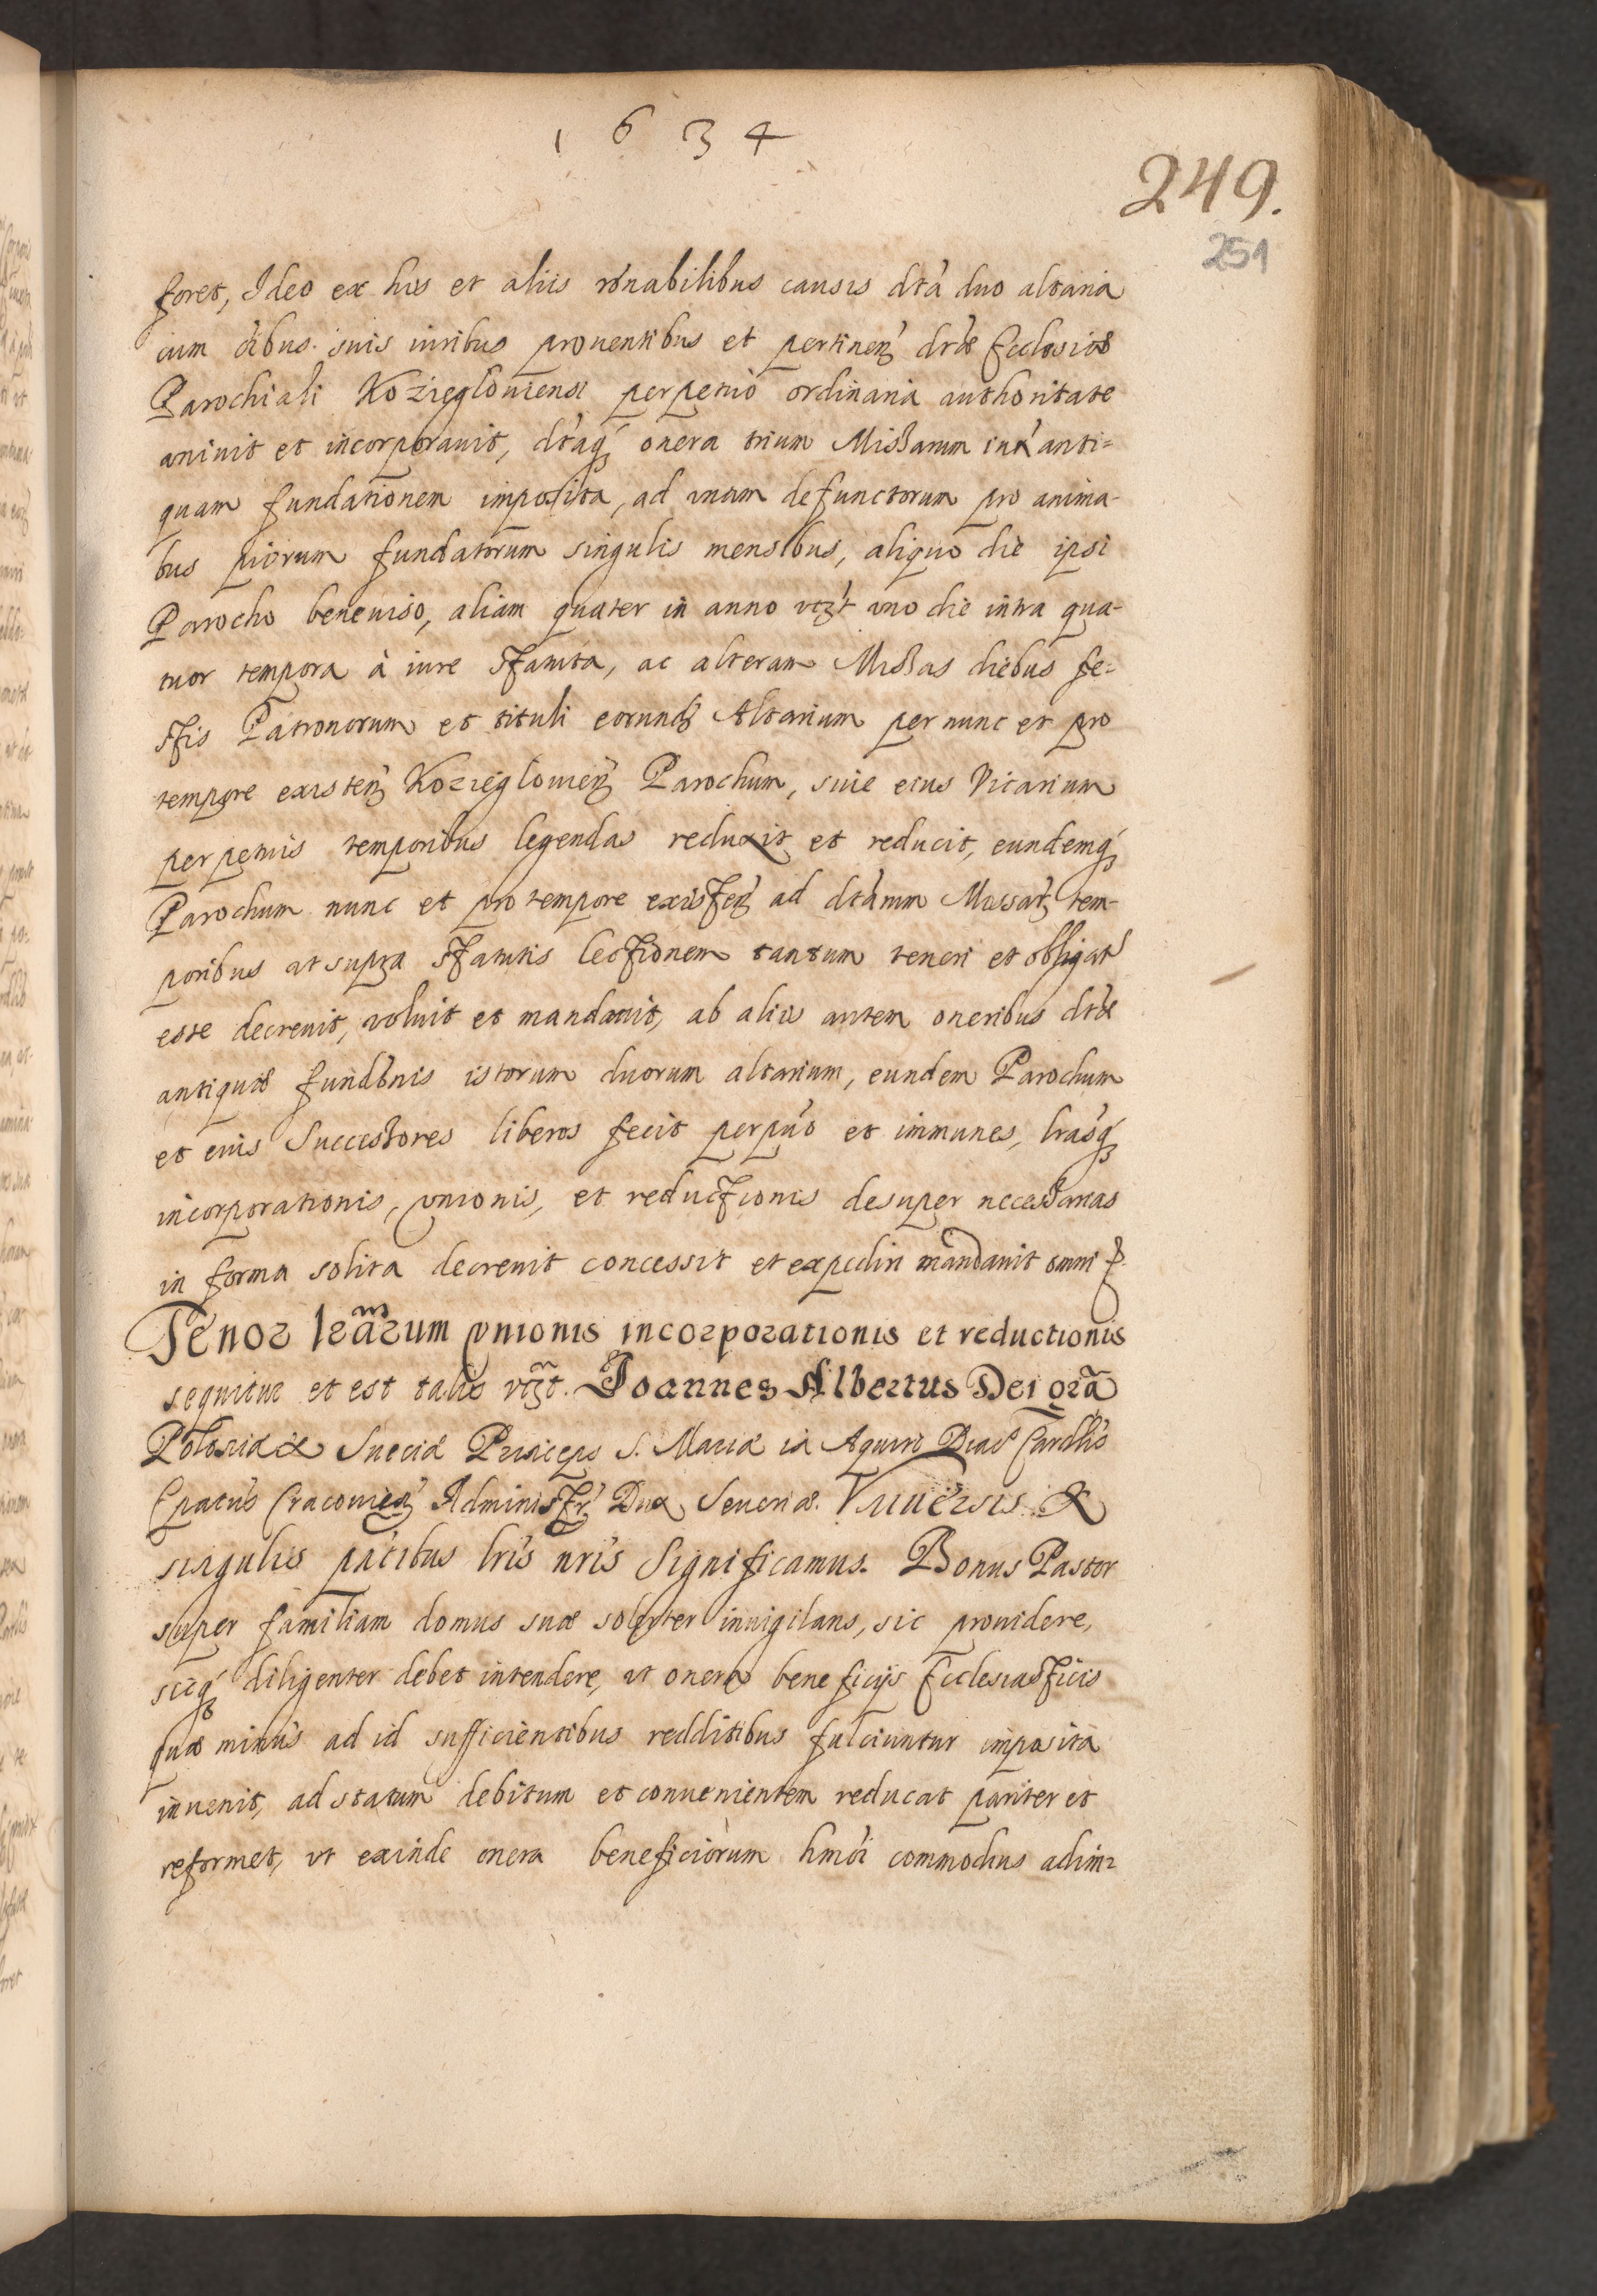 1634
249.
251
foret, Ideo ex his et aliis rõnabilibus causis dta duo altaria
cum oibus suis iuribus prouentibus et pertineñ dtæ Ecclesiæ
Parochiali Kozieglouiensi perpetuo ordinaria authoritate
univit et incorporauit, dtaq₃ onera trium Missarum iux anti=
quam fundationem imposita, ad unam defunctorum pro anima-
bus piorum fundatorum singulis mensibus, aliquo die ipsi
Parocho beneuiso, aliam quater in anno vꝫt uno die intra qua-
tuor tempora à iure statuta, ac alteram Missas diebus fe=
stis Patronorum et tituli eorund Altarium per nunc et pro
tempore existeñ Kozieglouieñ Parochum, siue eius Vicarium
perpetuis temporibus legendas reduxit et reducit, eundemq₃
Parochum nunc et pro tempore existeñ ad dtarum Missarꝫ tem-
poribus ut supra statutis lectionem tantum teneri et obligat
esse decreuit, voluit et mandauit, ab aliis autem oneribus dtæ
antiquæ fundõnis istorum duorum altarium, eundem Parochum
et eius Successores liberos fecit perpuo et immunes, lrasq₃
incorporationis, vnionis, et reductionis desuper necessarias
in forma solita decreuit concessit et expediri mandauit omni
Tenor lrãrum vnionis incorporationis et reductionis
sequitur et est talis vꝫt. Joannes Albertus Dei grã
Poloniæ & Sueciæ Princeps S. Mariæ in Aquiro Diac Cardlis
Epatus Cracouieñ Administr Dux Seueriæ. Vniuersis &
singulis pntibus lris nris Significamus. Bonus Pastor
super familiam domus suæ solerter inuigilans, sic prouidere,
sicq₃ diligenter debet intendere, vt onera beneficijs Ecclesiasticis
quæ minus ad id sufficientibus redditibus fulciuntur imposita
inuenit, ad statum debitum et conuenientem reducat pariter et
reformet, vt exinde onera beneficiorum hmoi commodius adim=